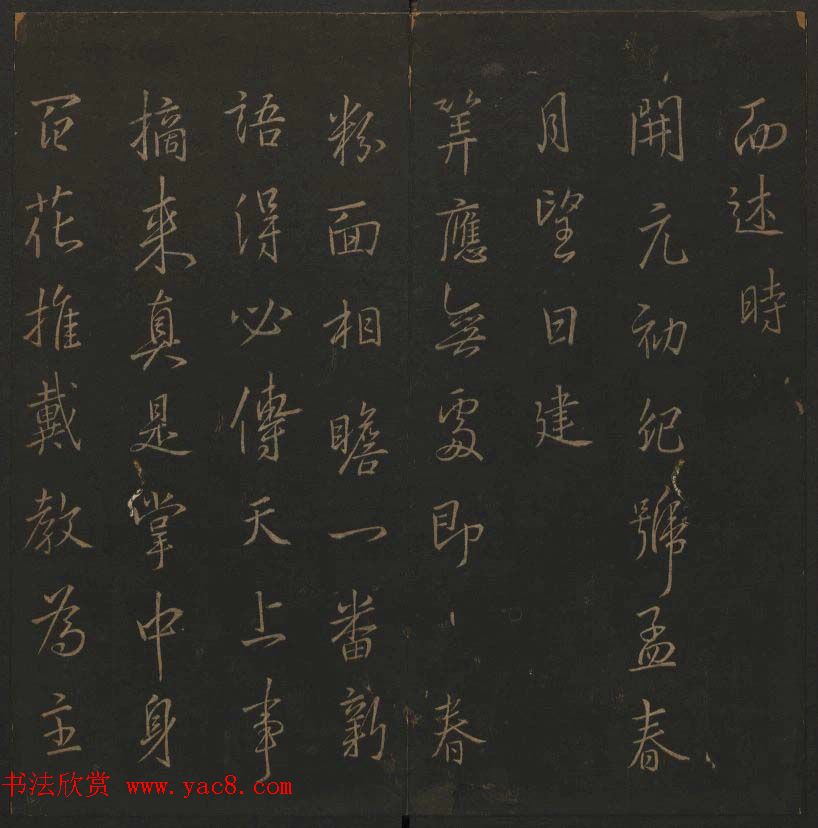 而述時
開元初紀號孟春
月望日建
筭應無處即春
粉面相瞻一番新
語得必傳天上事
摘来真是掌中身
百花推戴教為主
书法欣赏 www.yac8.com